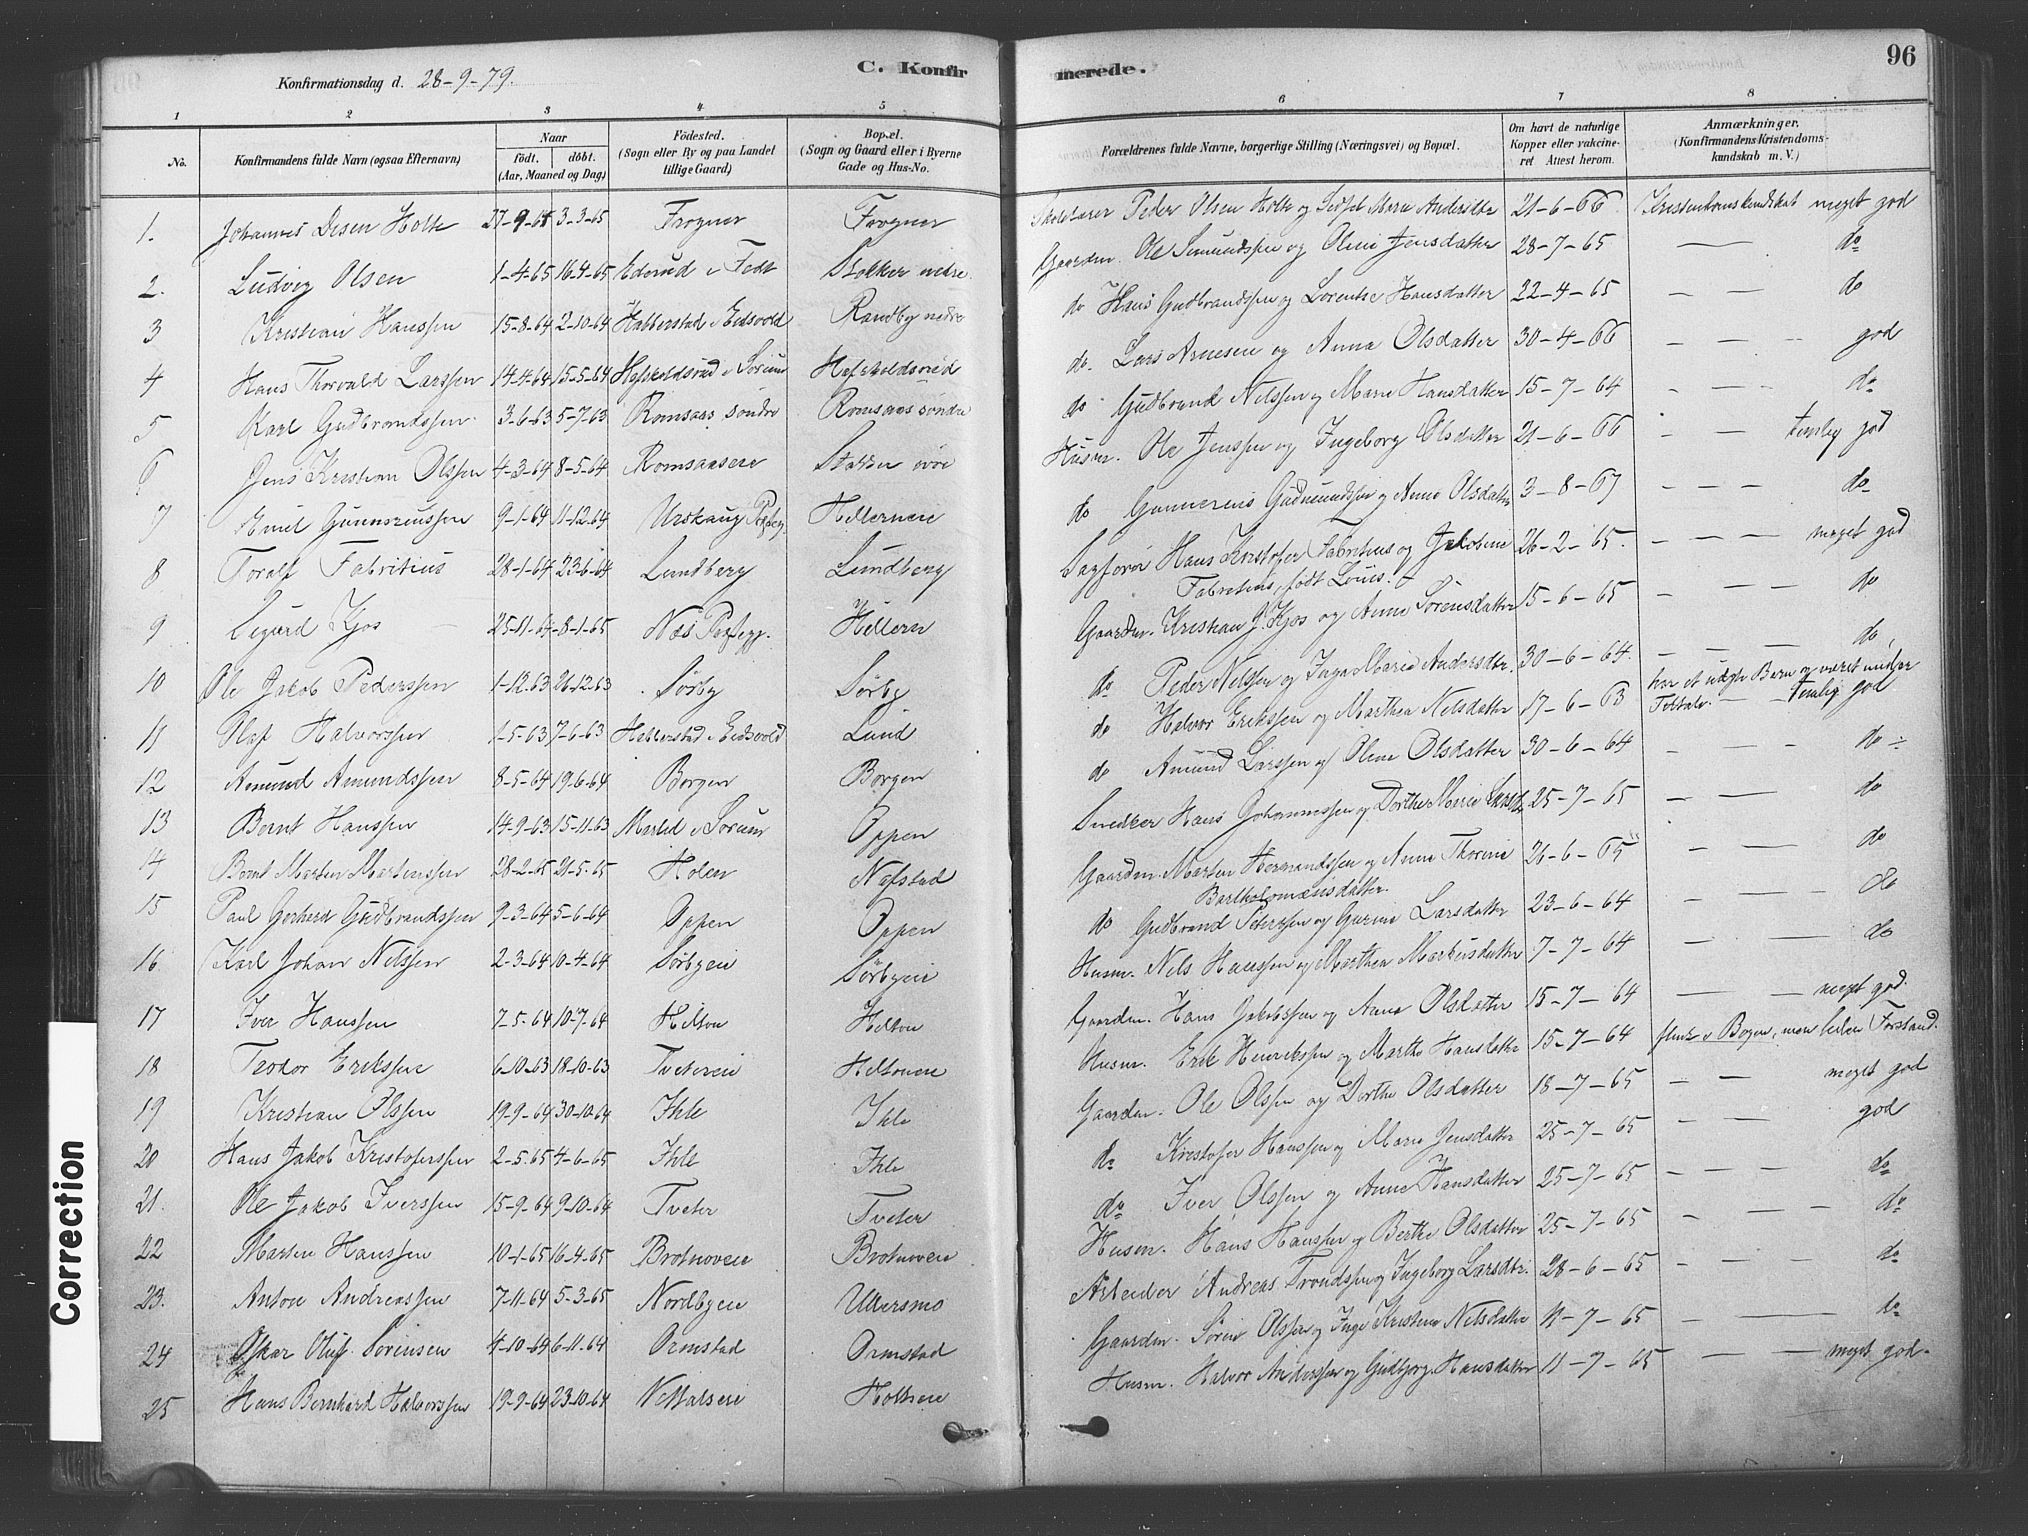 Konfirmationsdag d. 28-9-79. C. Konfirmerede. 96
1 2 3 4 5 6 7 8
No. Konfirmandens fulde Navn (ogsaa Efternavn) Naar født. døbt. (Aar, Maaned og Dag) Fødested. (Sogn eller By og paa Landet tillige Gaard) Bopæl. (Sogn og Gaard eller i Byerne Gade og Hus-No. Forældrenes fulde Navne, borgerlige Stilling (Næringsvei) og Bopæl. Om havt de naturlige Kopper eller vakcineret Attest herom. Anmærkninger. (Konfirmandens Kristendomskundskab m. V.)
1. Johannes Olsen Holte 27-9-64 3-3-65 Frogner Frogner Peder Olsen Holte og Marie Andersdtr 21-6-66 Kristendomskundskab meget god
2. Ludvig Olsen 1-4-65 16-4-65 i Fedt Stokker nedre Gaardm. Ole Simundssen og Oline Jensdatter 28-7-65 — do
3 Kristian Hanssen 15-8-64 2-10-64 Habberstad i Eidsvold Randby nedre do Hans Gudbrandssen og Lorentse Hansdatter 22-4-65 — — do
4 Hans Thorvald Larssen 14-4-64 15-5-64 Hafskoldsrud i Sørum Hafskoldsrud do. Lars Arnesen og Anna Olsdatter 30-4-66 — — — god
5 Karl Gudbrandssen 3-6-63 5-7-63 Romsaas søndre Romsaas søndre do Gudbrand Nilssen og Marie Hansdatter 15-7-64 — — — do
6 Jens Kristian Olssen 4-3-64 8-5-64 Romsaaseie Husm. Ole Jenssen og Ingeborg Olsdatter 21-6-66 — — temlig god
7 Emil Gunnerenssen 9-1-64 11-12-64 Urskaug Hellerneie do Gunnerius Gudmundssen og Anne Olsdatter 3-8-67 — — — do
8 Toralf Fabritius 28-1-64 23-6-64 Lundberg Lundberg Sagfører Hans Kristofer Fabritius og Jakobine Fabritius, født 26-2-65. — — — meget god
9 Sigurd Kjos 25-11-64 8-1-65 Nes Hellern Gaardm. Kristian J. Kjos og Anne Sørensdatter 15-6-65 — — do
10 Ole Jakob Pederssen 1-12-63 26-12-63 Sørby Sørby do Peder Nilssen og Inga Marie Andersdtr. 30-6-64. — — — do
11 Olaf Halvorssen 1-5-63 7-6-63 Habberstad i Eidsvold Lund do Halvor Erikssen og Marthea Nilsdatter 17-6-63 har et uægte Barn og været under Tiltale. — temlig god
12 Amund Amundssen 8-5-64 19-6-64 Borgen Borgen do Amund Larssen og Oline Olsdatter 30-6-64 — — — do
13 Bernt Hanssen 14-9-63 15-11-63 i Sørum Oppen Snedker Hans Johannessen og Dorthe Marie 25-7-65 — — — do
14 Bernt Marten Martenssen 28-2-65 21-5-65 Holen Nafstad Gaardm. Marten Hermandssen og Anne Thorine Bartholomæusdatter. 26-6-65 — — do
15 Paul Gerhard Gudbrandssen 9-3-64 5-6-64 Oppen Oppen do Gudbrand Peterssen og Gurine Larsdatter 23-6-64 — — — do
16 Karl Johan Nilssen 2-3-64 10-4-64 Sørbyeie Sørbyeie Husm. Nils Hanssen og Marthea Markusdatter 7-7-64 — — do
17 Iver Hanssen 7-5-64 10-7-64 Helton Helton Gaardm. Hans Jakobssen og Anna Olsdatter 15-7-64 — — — meget god.
18 Teodor Erikssen 6-10-63 18-10-63 Tvetereie Heltoneie Husm. Erik Henrikssen og Marthe Hansdatter 15-7-64 flink i Bogen, men liden Forstand.
19 Kristian Olssen 19-9-64 30-10-64 Ihle Ihle Gaardm. Ole Olssen og Dorthe Olsdatter 18-7-65 — — meget god
20 Hans Jakob Kristoferssen 2-5-65 4-6-65 Ihle Ihle do Kristofer Hanssen og Marie Jensdatter 25-7-65 — — god
21. Ole Jakob Iverssen 15-9-64 9-10-64 Tveter Tveter do Iver Olssen og Anne Hansdatter 25-7-65 — — — do
22 Marten Hanssen 10-1-65 16-4-65 Brotnoveie Brotnoveie Husm. Hans Hanssen og Berthe Olsdatter 25-7-65 — — — do
23. Anton Andreassen 7-11-64 5-3-65 Nordbyeie Ullersmo Arbeider Andreas Trondssen og Ingeborg Larsdtr. 28-6-65 — — — do
24 Oskar Oluf Sørensen 4-10-64 6-11-64 Ormstad Ormstad Gaardm. Sørin Olssen og Inge Kristine Nilsdatter 4-7-65 — — do
25 Hans Bernhard Halvorssen 19-9-64 23-10-64 Holtseie Husm. Halvor Anderssen og Gudbjørg Hansdatter 11-9-65 — — meget god.
Correction